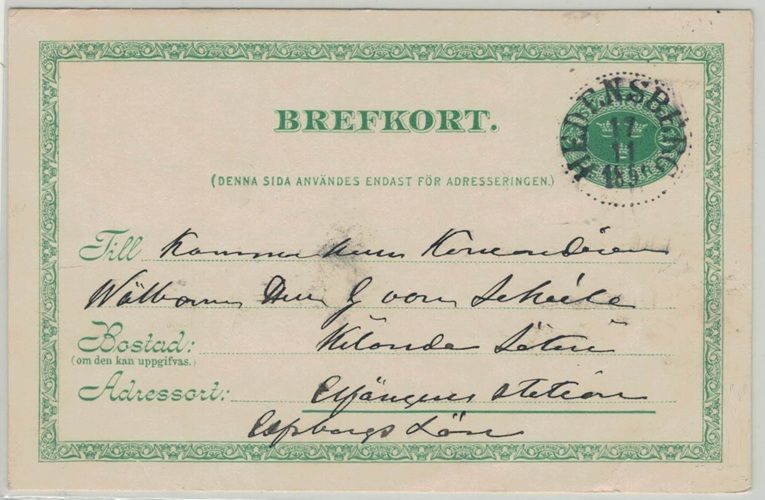 BREFKORT.
HEDENSBERG
17
11
(DENNA SIDA ANVÄNDES ENDAST FÖR ADRESSERINGEN.)
Till Kammarherren Komendören
Wälborne Herr G von Scheele
Bostad: Kilanda Säteri
(om den kan uppgifvas.)
Adressort: Elfängens station
Elfsborgs Län